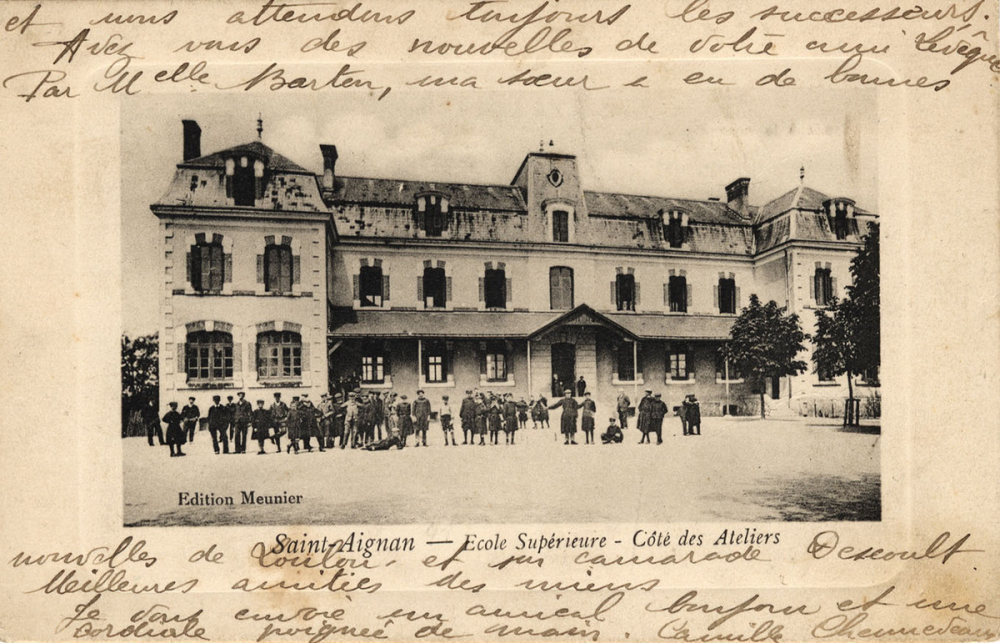 et nous attendons toujours les successeurs.
Avez vous des nouvelles de votre ami Levêque
Par Melle Barton, ma sœur a eu de bonnes
Edition Meunier
Saint-Aignan — Ecole Supérieure - Côté des Ateliers
nouvelles de Loulou, et son camarade Descoult
Meilleures amitiés des miens
Je vous envoie un amical bonjour et une
cordiale poignée de main. Camille